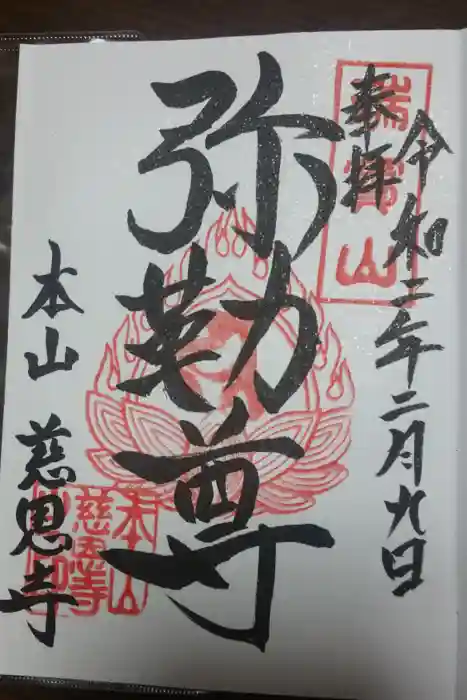 奉拝
令和二年二月九日
瑞宝山
弥勒尊
本山 慈恩寺
本山
慈恩寺